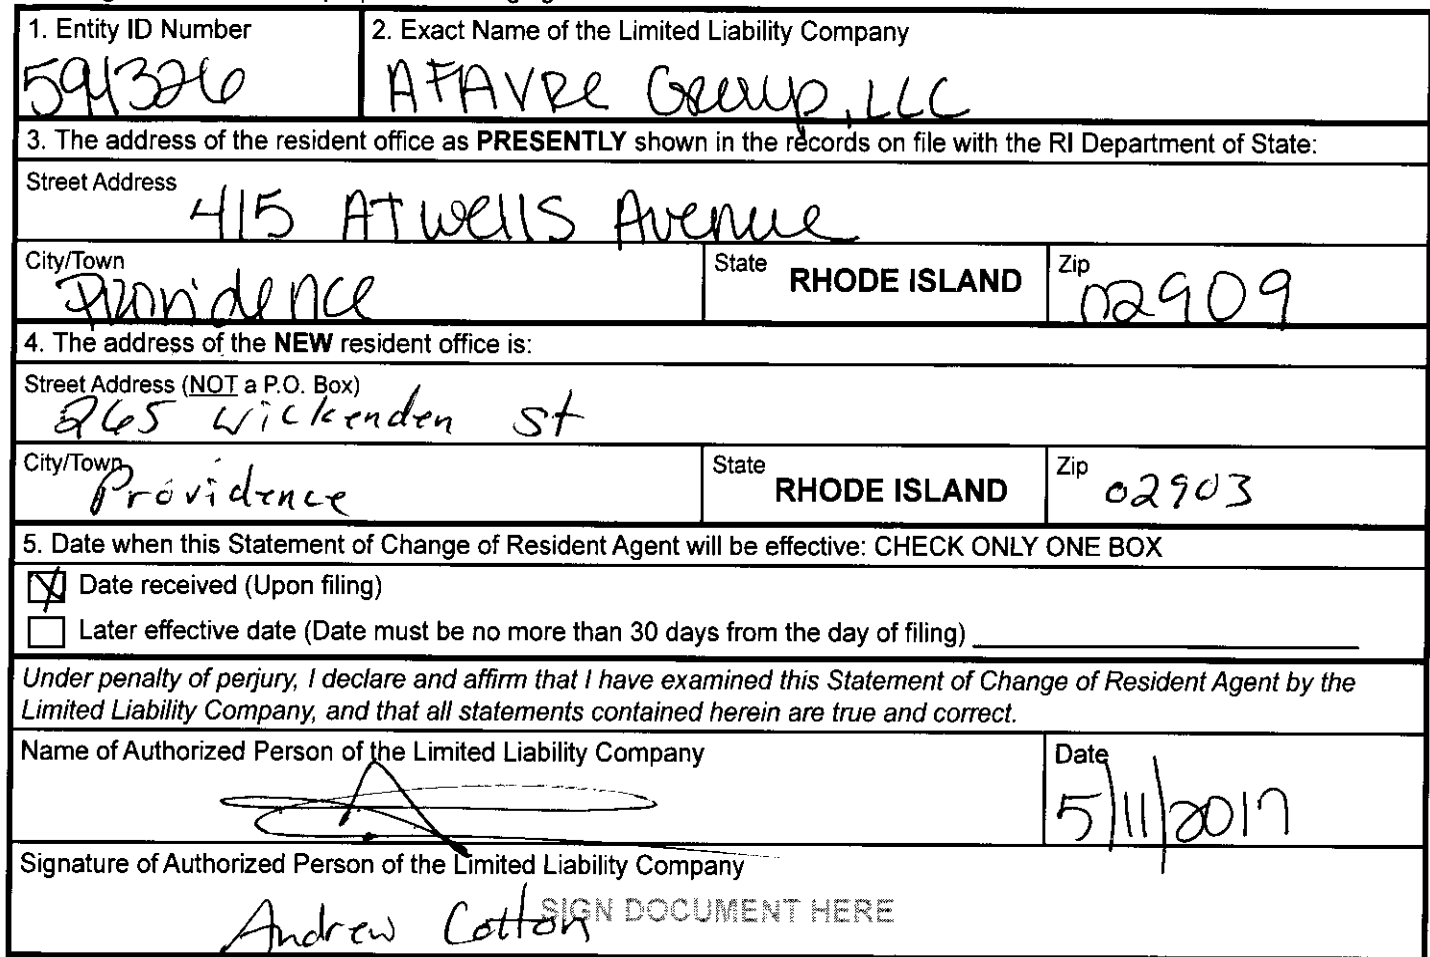 1. Entity ID Number
2. Exact Name of the Limited Liability Company
591326
AFAVRE Group, LLC
3. The address of the resident office as PRESENTLY shown in the records on file with the RI Department of State:
Street Address
415 Atwells Avenue
City/Town
Providence
State RHODE ISLAND
Zip
02909
4. The address of the NEW resident office is:
Street Address (NOT a P.O. Box)
265 Wickenden St
City/Town
Providence
State RHODE ISLAND
Zip 02903
5. Date when this Statement of Change of Resident Agent will be effective: CHECK ONLY ONE BOX
Date received (Upon filing)
Later effective date (Date must be no more than 30 days from the day of filing)
Under penalty of perjury, I declare and affirm that I have examined this Statement of Change of Resident Agent by the
Limited Liability Company, and that all statements contained herein are true and correct.
Name of Authorized Person of the Limited Liability Company
Date
5/11/2017
Signature of Authorized Person of the Limited Liability Company
Andrew Cotton
SIGN DOCUMENT HERE